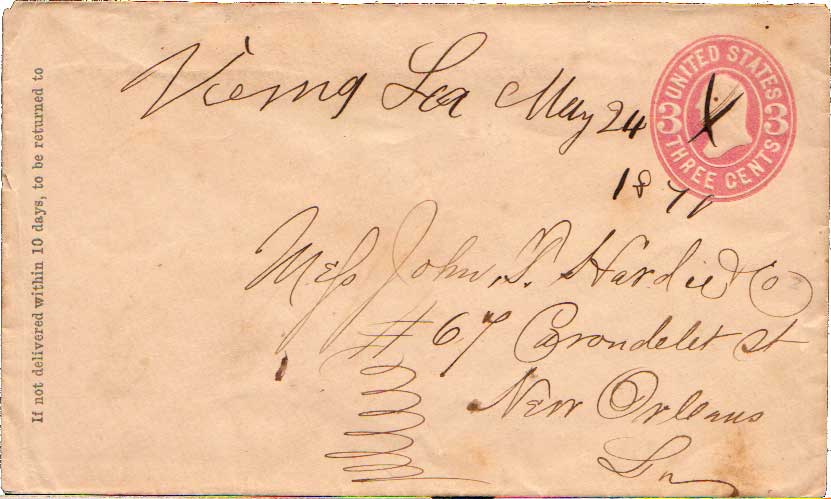 If not delivered within 10 days, to be returned to
Vienna La May 24
187
UNITED STATES
3 3
THREE CENTS
Mess John T. Hardie & Co
#67 Carondelet St
New Orleans
La